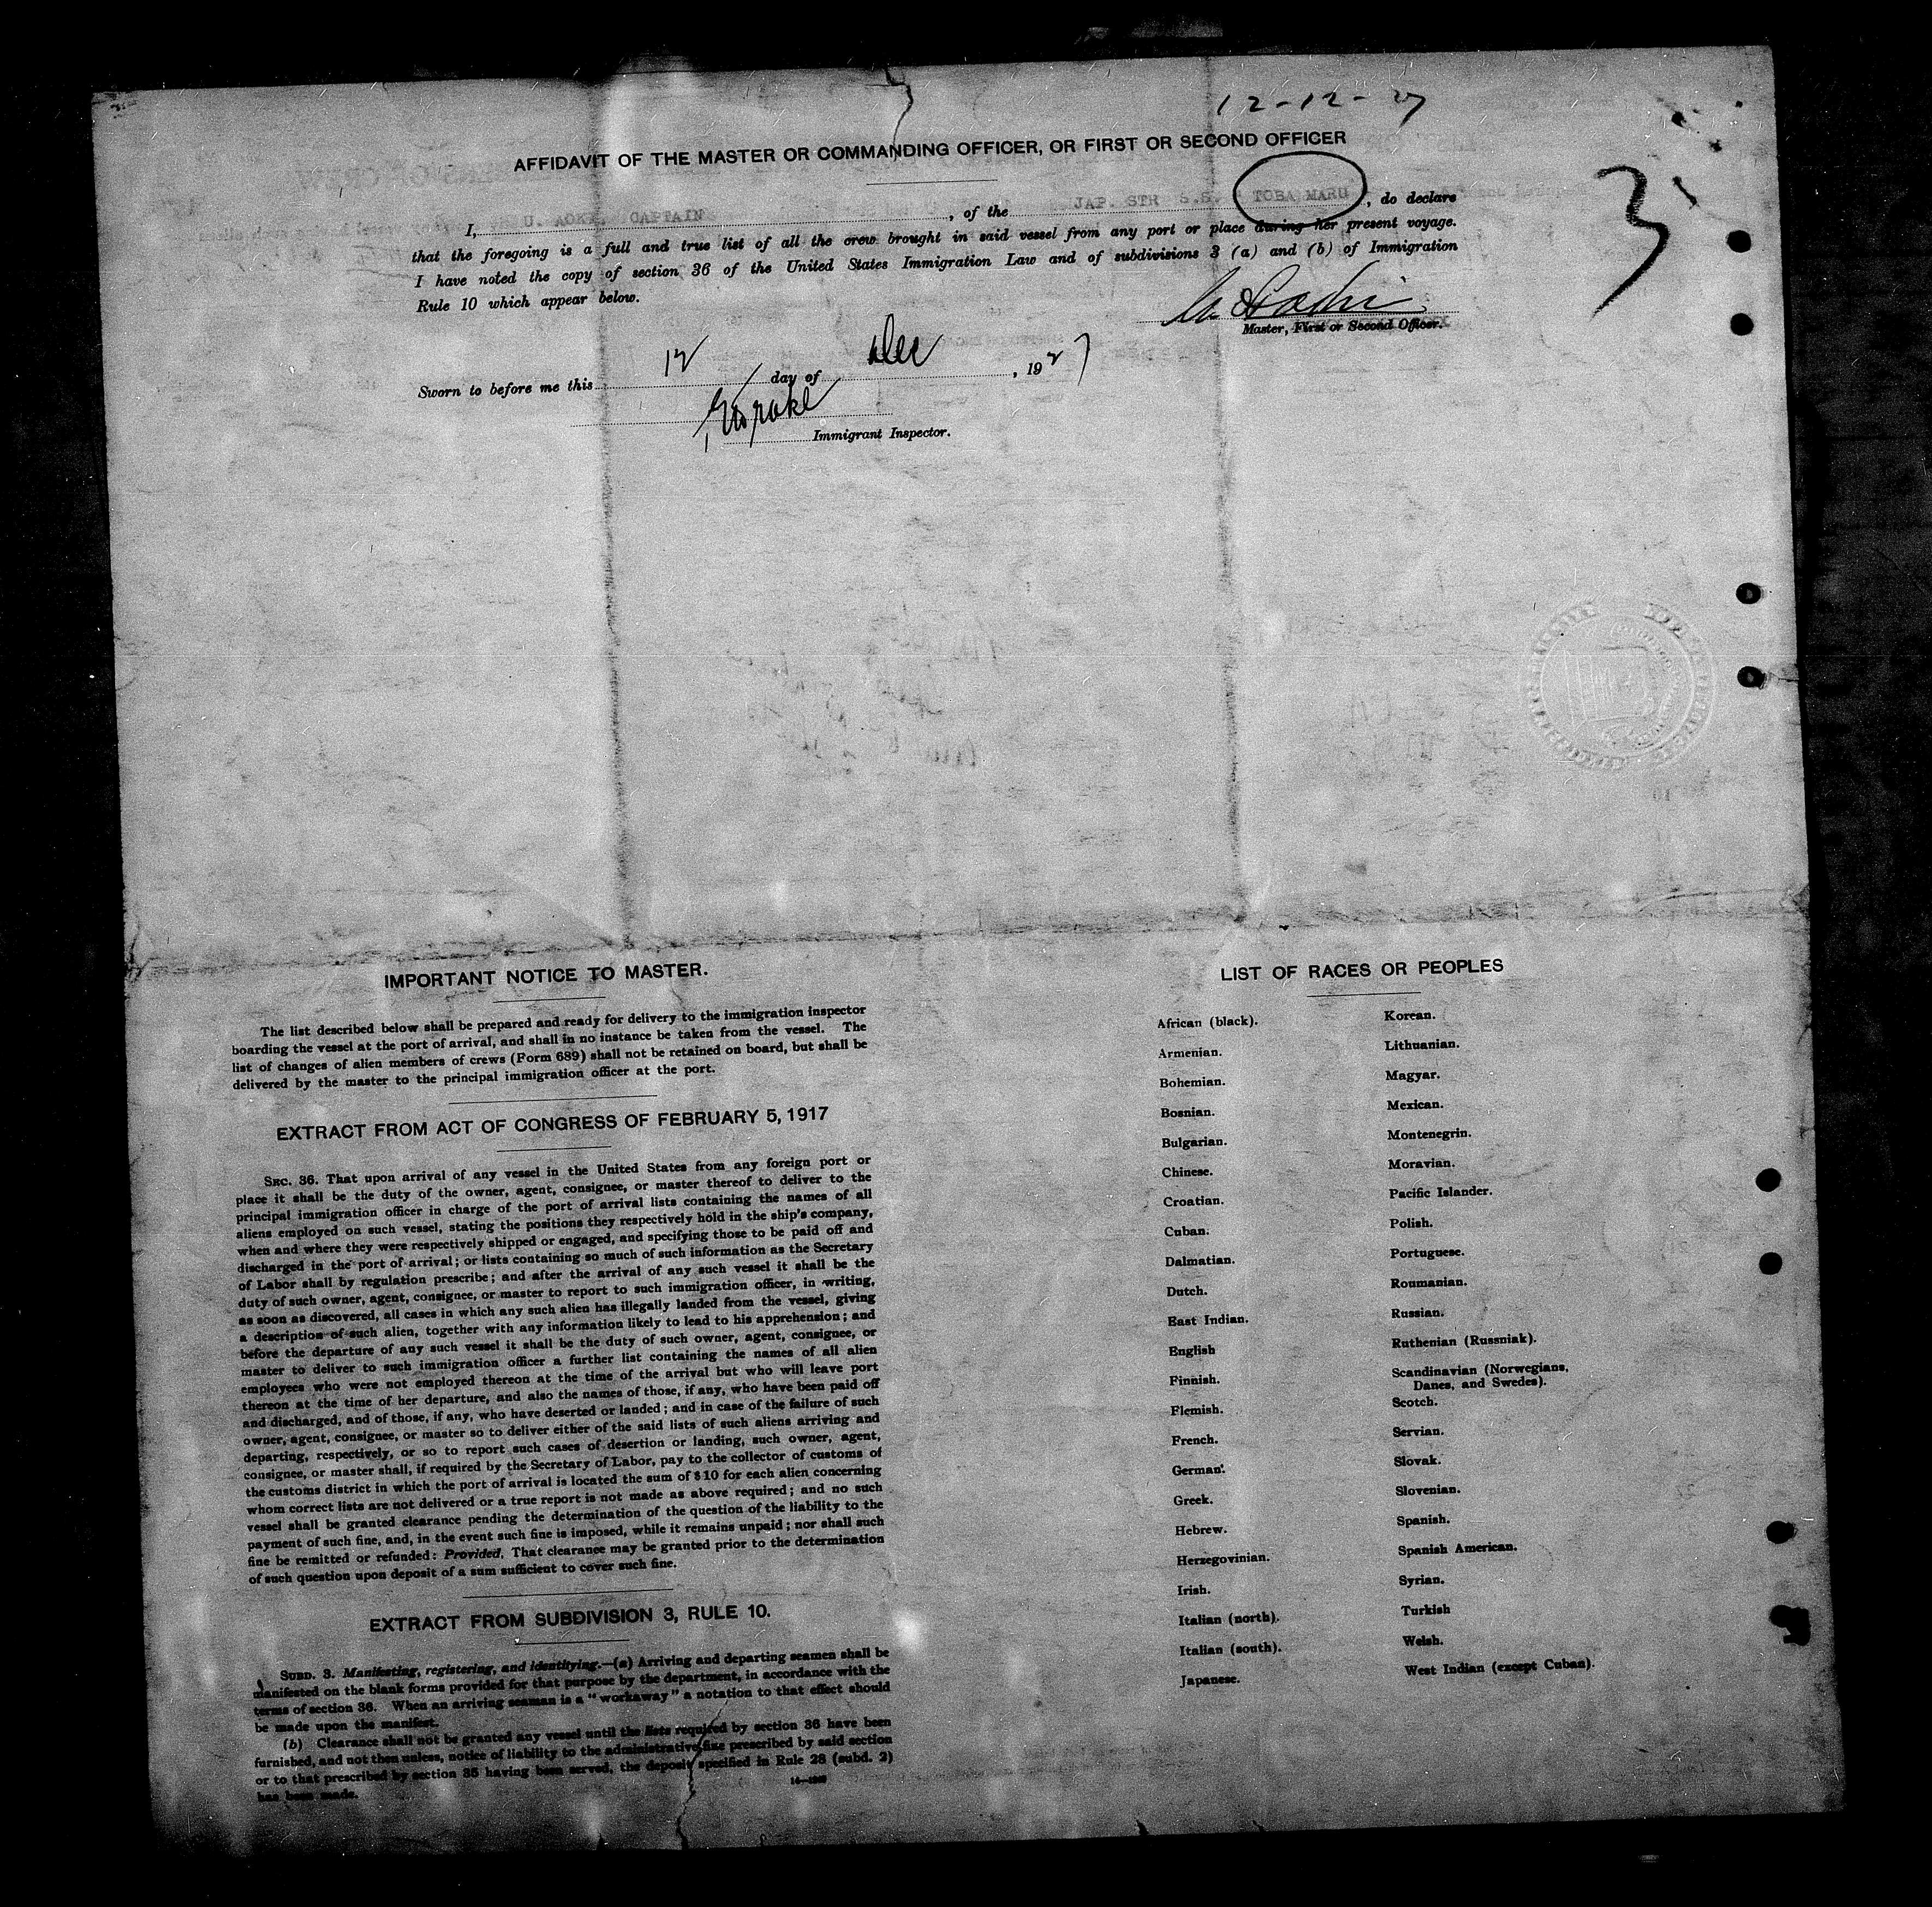 12-12-27
AFFIDAVIT OF THE MASTER OR COMMANDING OFFICER, OR FIRST OR SECOND OFFICER
3
I, U. AOKI, CAPTAIN, of the JAP. STR S.S. TOBA MARU, do declare
that the foregoing is a full and true list of all the crew brought in said vessel from any port or place during her present voyage.
I have noted the copy of section 36 of the United States Immigration Law and of subdivisions 3 (a) and (b) of Immigration
Rule 10 which appear below.
Master, First or Second Officer.
Sworn to before me this 12 day of Dec, 1927
Immigrant Inspector.
IMPORTANT NOTICE TO MASTER.
The list described below shall be prepared and ready for delivery to the immigration inspector
boarding the vessel at the port of arrival, and shall in no instance be taken from the vessel. The
list of changes of alien members of crews (Form 689) shall not be retained on board, but shall be
delivered by the master to the principal immigration officer at the port.
EXTRACT FROM ACT OF CONGRESS OF FEBRUARY 5, 1917
SEC. 36. That upon arrival of any vessel in the United States from any foreign port or
place it shall be the duty of the owner, agent, consignee, or master thereof to deliver to the
principal immigration officer in charge of the port of arrival lists containing the names of all
aliens employed on such vessel, stating the positions they respectively hold in the ship's company,
when and where they were respectively shipped or engaged, and specifying those to be paid off and
discharged in the port of arrival; or lists containing so much of such information as the Secretary
of Labor shall by regulation prescribe; and after the arrival of any such vessel it shall be the
duty of such owner, agent, consignee, or master to report to such immigration officer, in writing,
as soon as discovered, all cases in which any such alien has illegally landed from the vessel, giving
a description of such alien, together with any information likely to lead to his apprehension; and
before the departure of any such vessel it shall be the duty of such owner, agent, consignee, or
master to deliver to such immigration officer a further list containing the names of all alien
employees who were not employed thereon at the time of the arrival but who will leave port
thereon at the time of her departure, and also the names of those, if any, who have been paid off
and discharged, and of those, if any, who have deserted or landed; and in case of the failure of such
owner, agent, consignee, or master so to deliver either of the said lists of such aliens arriving and
departing, respectively, or so to report such cases of desertion or landing, such owner, agent,
consignee, or master shall, if required by the Secretary of Labor, pay to the collector of customs of
the customs district in which the port of arrival is located the sum of $10 for each alien concerning
whom correct lists are not delivered or a true report is not made as above required; and no such
vessel shall be granted clearance pending the determination of the question of the liability to the
payment of such fine, and, in the event such fine is imposed, while it remains unpaid; nor shall such
fine be remitted or refunded: Provided, That clearance may be granted prior to the determination
of such question upon deposit of a sum sufficient to cover such fine.
EXTRACT FROM SUBDIVISION 3, RULE 10.
SUBD. 3. Manifesting, registering, and identifying.—(a) Arriving and departing seamen shall be
manifested on the blank forms provided for that purpose by the department, in accordance with the
terms of section 36. When an arriving seaman is a "workaway" a notation to that effect should
be made upon the manifest.
(b) Clearance shall not be granted any vessel until the lists required by section 36 have been
furnished, and not then unless, notice of liability to the administrative fine prescribed by said section
or to that prescribed by section 35 having been served, the deposit specified in Rule 28 (subd. 2)
has been made.
LIST OF RACES OR PEOPLES
African (black).
Armenian.
Bohemian.
Bosnian.
Bulgarian.
Chinese.
Croatian.
Cuban.
Dalmatian.
Dutch.
East Indian.
English
Finnish.
Flemish.
French.
German.
Greek.
Hebrew.
Herzegovinian.
Irish.
Italian (north).
Italian (south).
Japanese.
Korean.
Lithuanian.
Magyar.
Mexican.
Montenegrin.
Moravian.
Pacific Islander.
Polish.
Portuguese.
Roumanian.
Russian.
Ruthenian (Russniak).
Scandinavian (Norwegians,
Danes, and Swedes).
Scotch.
Servian.
Slovak.
Slovenian.
Spanish.
Spanish American.
Syrian.
Turkish
Welsh.
West Indian (except Cuban).